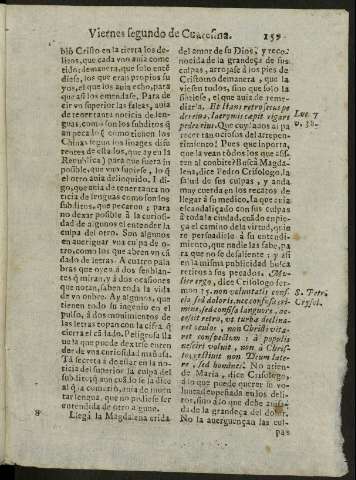 Viernes segundo de Cuaresma. 159
bió Cristo en la tierra los de-
litos, que cada vno auia come
tido: demanera, que solo ente
diese, los que eran propios su
yos, el que los auia echo, para
que asi los entendiese. Para de
cir vn superior las faltas, auia
de tener tanta noticia de len-
guas, como son los subditos q̃
an pecado, q̃ como tienen los
Chinas segun los
ferentes de ellos, que ay en la
Republica) para que fuera in
posible, que vno supiese, lo q̃
el otro auia delinquido. I di-
go, que auia de tener tanta no
ticia de lenguas como son los
subditos, que pecaron; para
no dexar posible à la curiosi-
dad de algunos el entender la
culpa del otro. Son algunos
en aueriguar vna culpa de o-
tro, como los que abren vn cã
dado de letras. A cuatro pala
bras que oyen, à dos senblan-
tes q̃ miran, y à dos ocasiones
que notan, saben toda la vida
de vn onbre. Ay algunos, que
tienen todo su ingenio en el
pulso, à dos mouimientos de
las letras topan con la cifra q̃
cierra el cãdado. Peligrosa lla
ue la que puede dexarse enten
der de vna curiosidad maliciosa.
Tã secreta à de ser en la no-
ticia del superior la culpa del
subdito, q̃ aun cuãdo se la dice
al q̃ la cometió, auia de mudar
tar lengua, que no pudiese ser
entendida de otro alguno.
8 Llega la Magdalena erida
del amor de su Dios, y reco-
nocida de la grandeça de sus
culpas, arrojase à los pies de
Cristo: no demanera, que la
viesen todos, sino que solo la
sintiese, el que auia de reme-
diarla. Et stans retro secus pe
des eius, lacrymis cepit rigare
pedes eius. Que cuydados al pa
recer tan ociosos del arrepen-
timiento! Pues que inporta,
que la vean todos los que asis-
ten al conbite? Busca Magda-
lena, dice Pedro Crisologo, la
salud de sus culpas, y anda
muy cuerda en los recatos de
llegar al medico, la que auia
escandaliçado con sus culpas
à toda la ciudad, cuãdo enpie-
ça el camino de la virtud, quie
re persuadirlo à su entendi-
miento, que nadie las sabe, pa
ra que no se desaliente; y asi
en la misma publicidad busca
retiros à sus pecados. Mu-
lier ergo, dice Crisologo ser-
mon 75. non voluntatis consi-
cia, sed doloris, nec confusa cri
mine, sed confusa languore, ac-
cessit retro, vt turba declina-
ret oculos, non Christi vita-
ret conspectum: à populis
nesciri voluit, non à Chris-
to, restiuit non Deum late-
re, sed homines! No atien-
de Maria, dice Crisologo,
à lo que puede querer la vo-
luntad enpeñada en los deli-
tos, sino à lo que debe
da de la grandeça del dolor.
No la auerguençan las cul-
pas
Luc. 7
v. 38.
S. Petr.
Crysol.